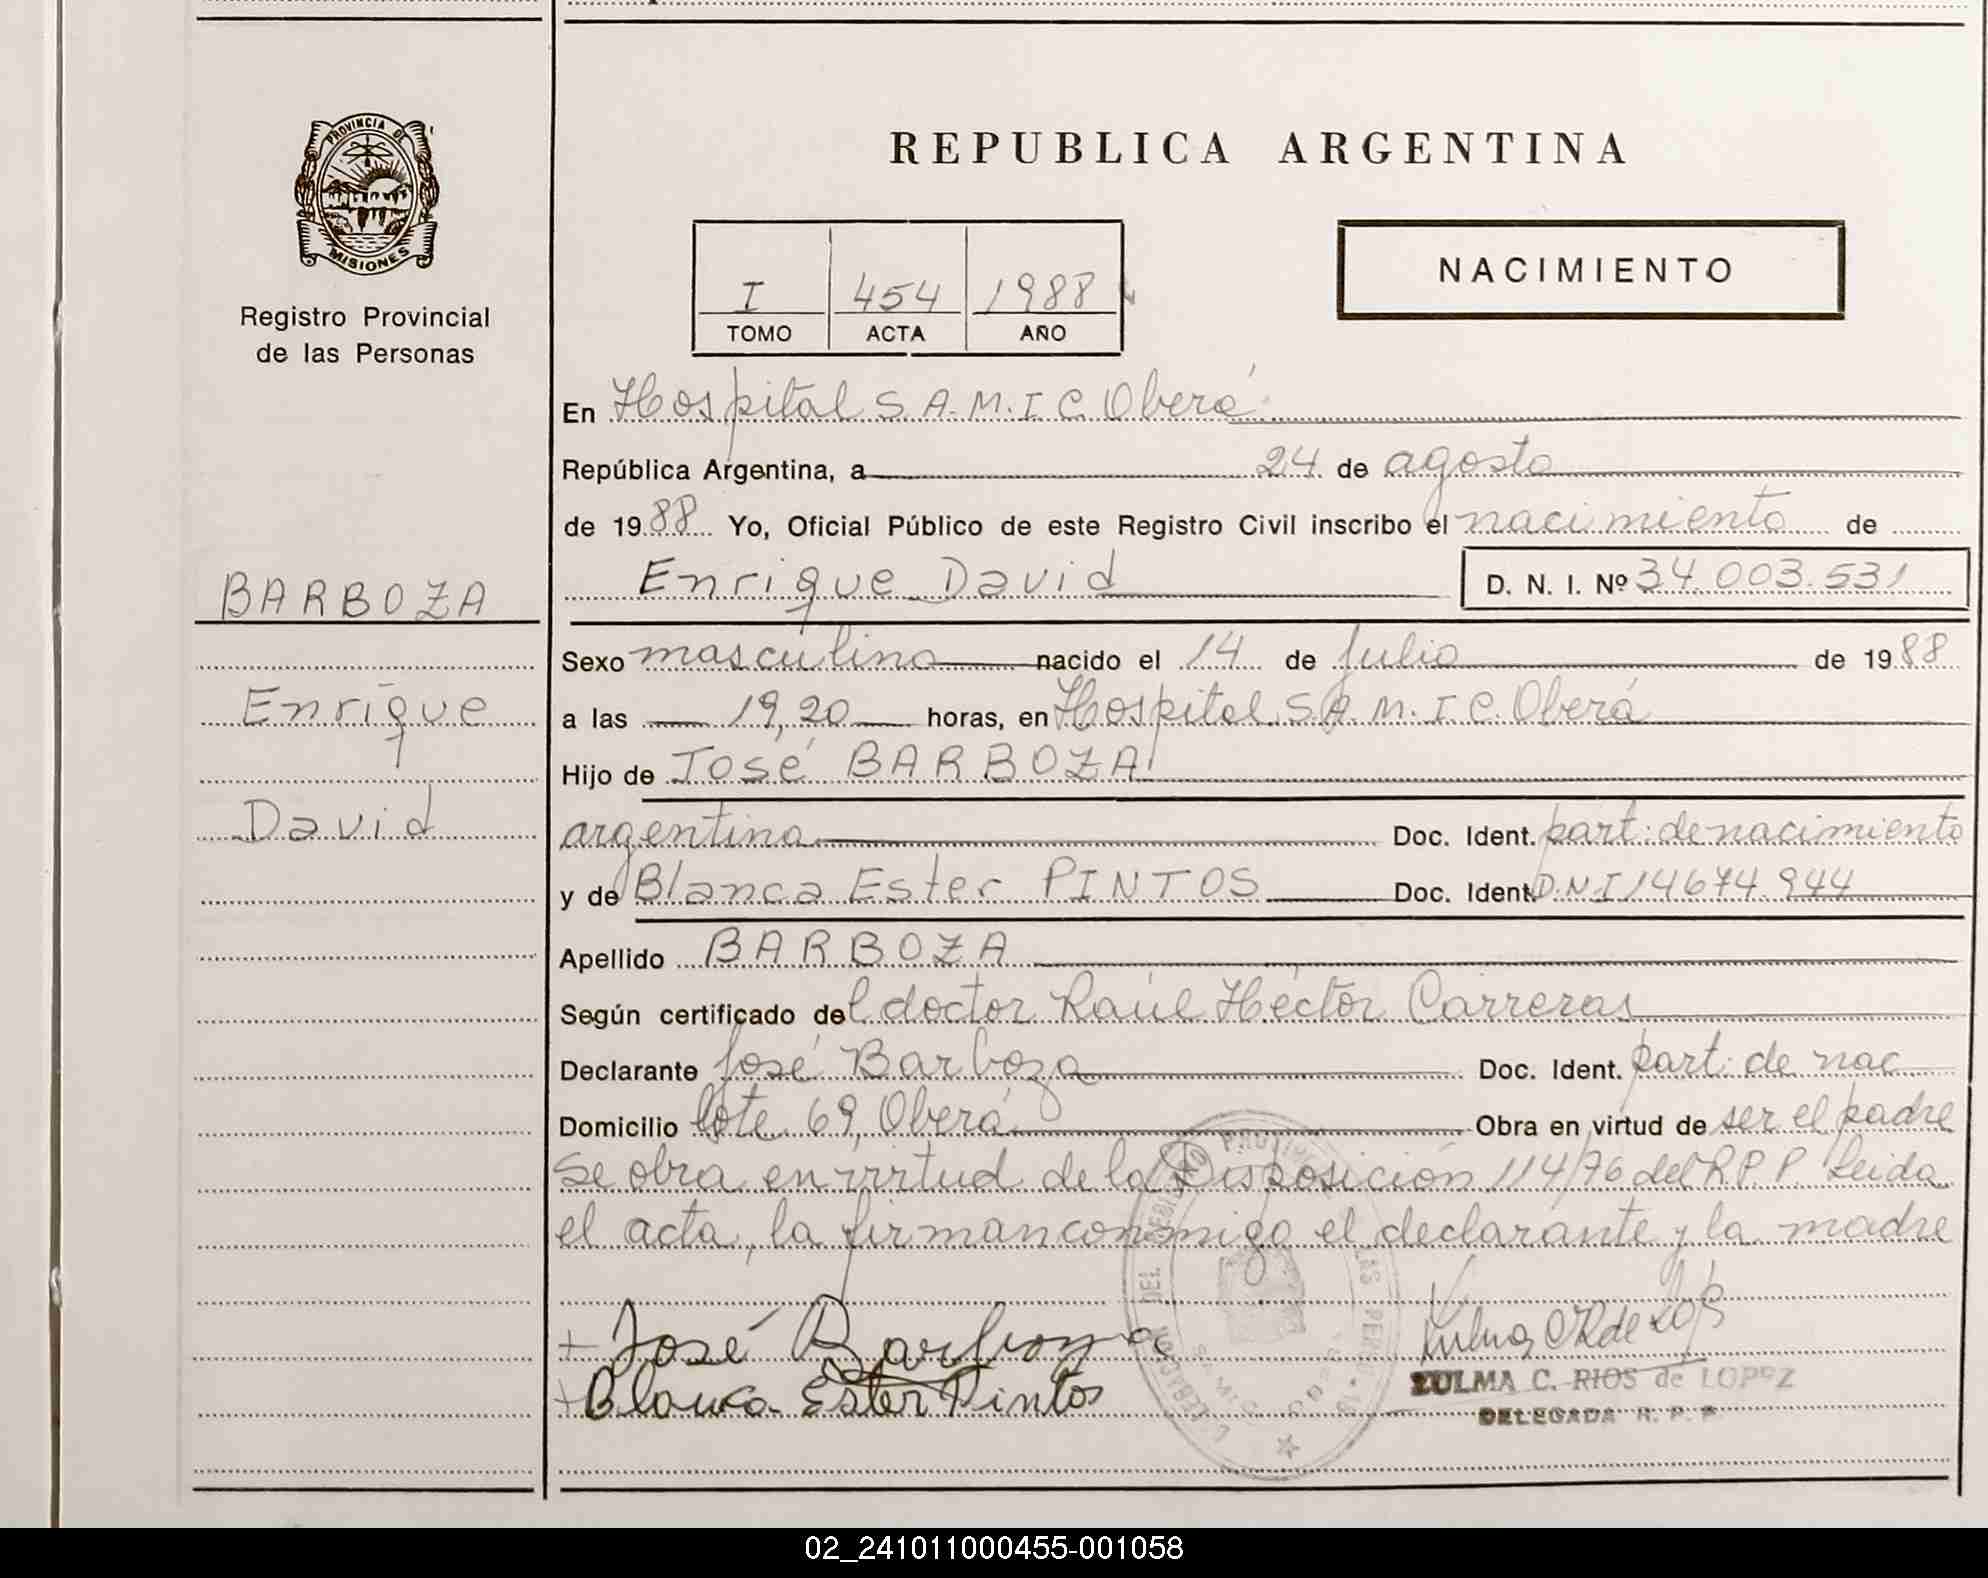 PROVINCIA DE
MISIONES
Registro Provincial
de las Personas
BARBOZA
Enrique
David
REPUBLICA ARGENTINA
I 454 1988
TOMO ACTA AÑO
NACIMIENTO
En Hospital S.A.M.I.C. Oberá
República Argentina, a 24 de agosto
de 1988 Yo, Oficial Público de este Registro Civil inscribo el nacimiento de
Enrique David D. N. I. Nº 34.003.531
Sexo masculino nacido el 14 de julio de 1988
a las 19,20 horas, en Hospital S.A.M.I.C. Oberá
Hijo de José BARBOZA
argentino Doc. Ident. part. de nacimiento
y de Blanca Ester PINTOS Doc. Ident. D.N.I 14674.944
Apellido BARBOZA
Según certificado del doctor Raúl Héctor Carreras
Declarante José Barboza Doc. Ident. part. de nac
Domicilio lote 69, Oberá Obra en virtud de ser el padre
se obra en virtud de la Disposición 114/76 del R.P.P. Leida
el acta, la firman conmigo el declarante y la madre
José Barboza
Blanca Ester Pintos
ZULMA C. RIOS de LOPEZ
DELEGADA R. P. P.
02_241011000455-001058